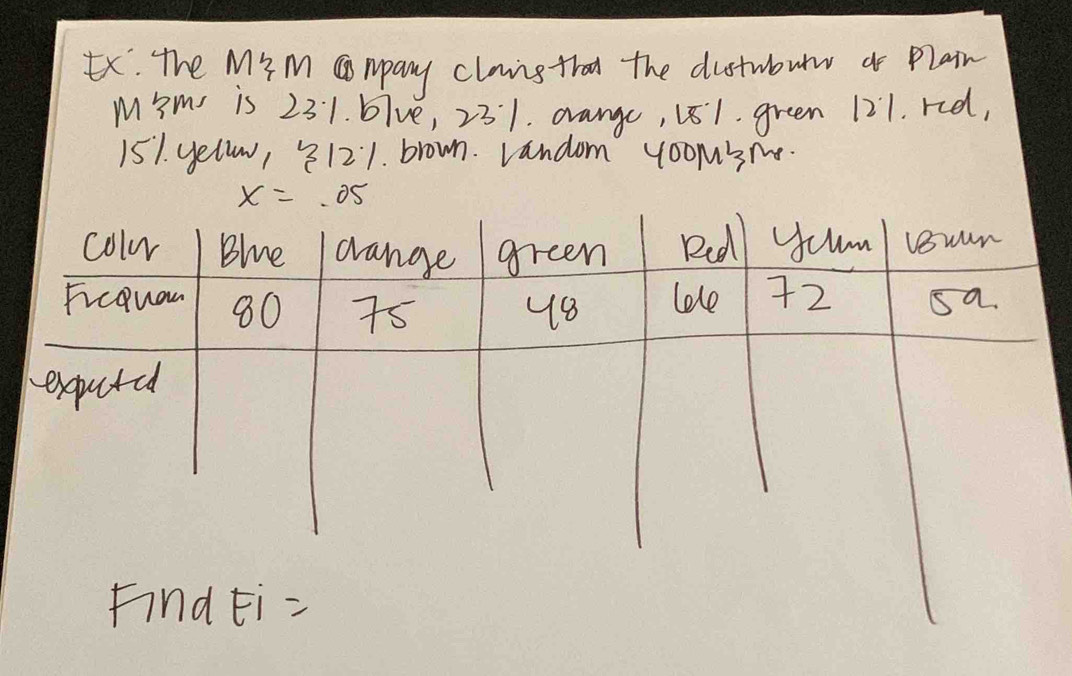 Ex: The M&M company claims that the distribution of Plain
M&Ms is 23%. blue, 23%. orange, 15%. green 12%. red,
15%. yellow, & 12%. brown. random 400 M&Ms.
x = .05
Color Blue orange green Red Yellow Brown
Frequen 80 75 48 66 72 59
expected
Find Ei =